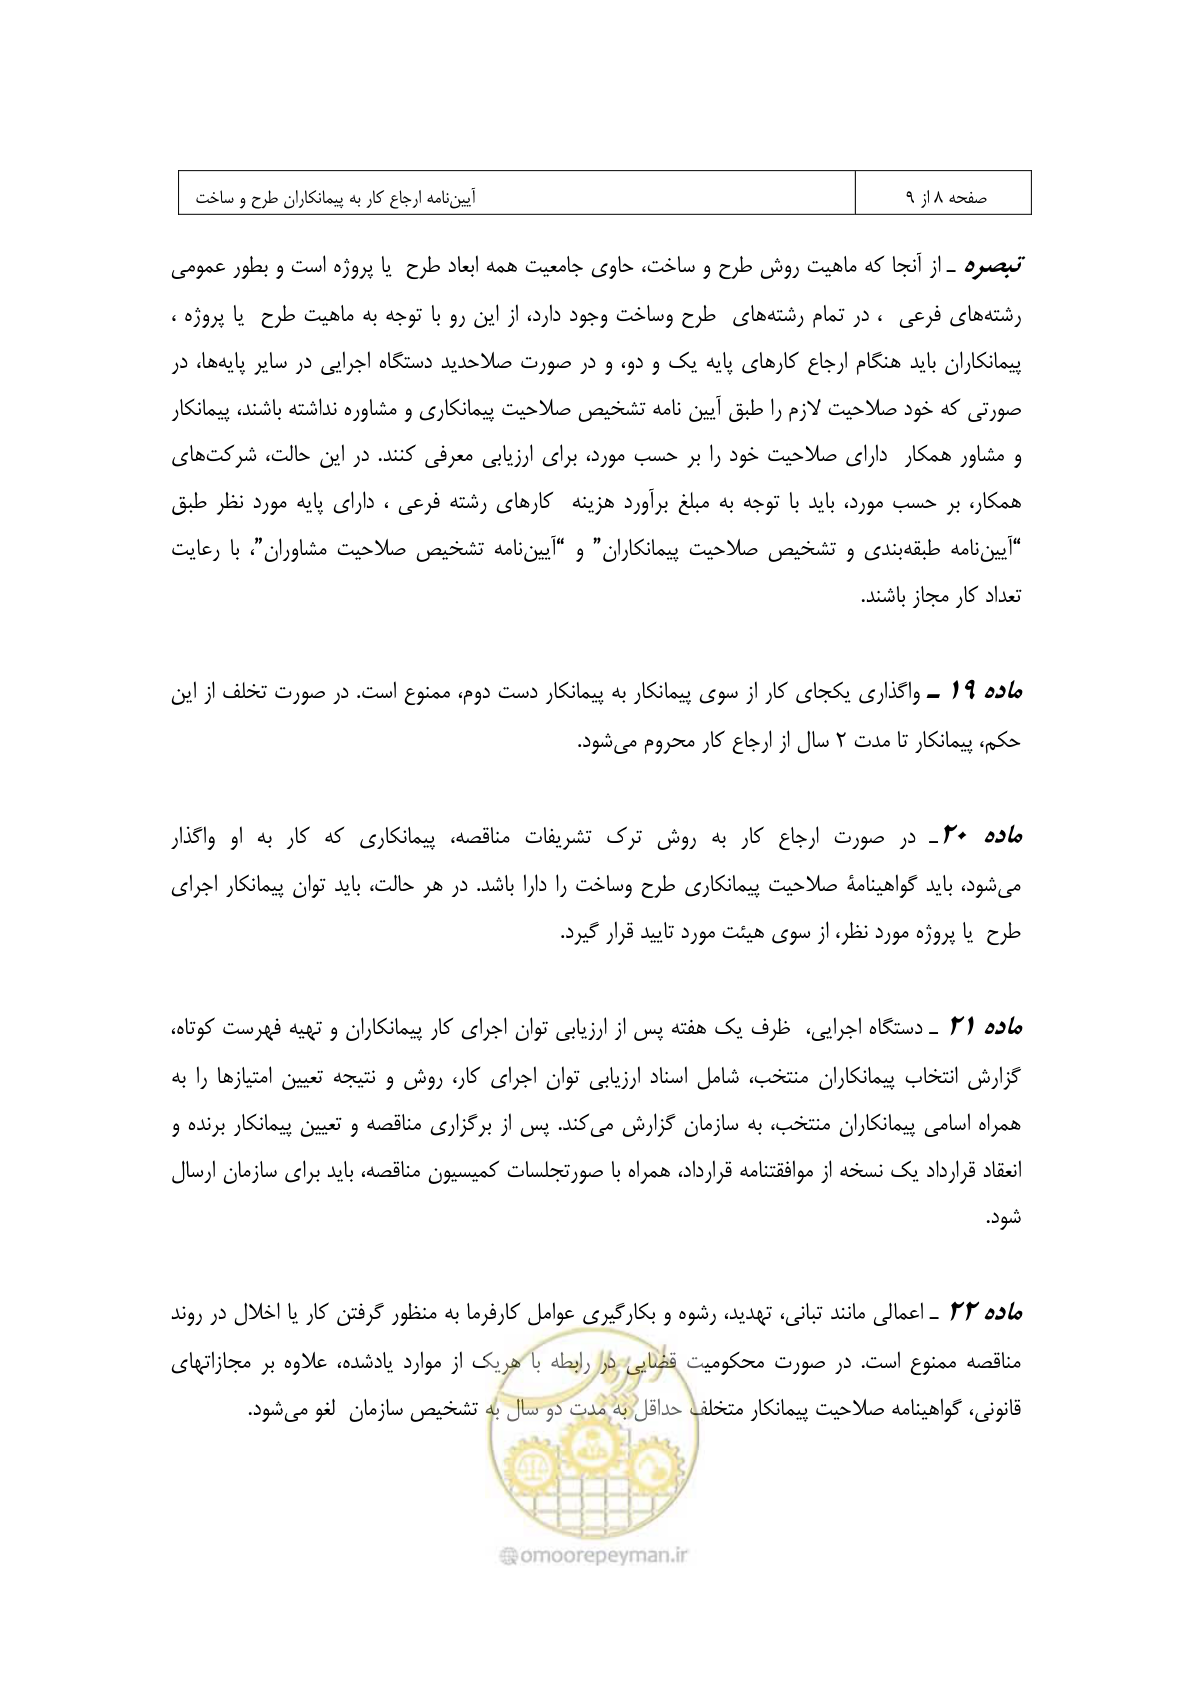 صفحه ۸ از ۹
آیین‌نامه ارجاع کار به پیمانکاران طرح و ساخت
تبصره ـ از آنجا که ماهیت روش طرح و ساخت، حاوی جامعیت همه ابعاد طرح یا پروژه است و بطور عمومی
رشته‌های فرعی ، در تمام رشته‌های طرح وساخت وجود دارد، از این رو با توجه به ماهیت طرح یا پروژه ،
پیمانکاران باید هنگام ارجاع کارهای پایه یک و دو، و در صورت صلاحدید دستگاه اجرایی در سایر پایه‌ها، در
صورتی که خود صلاحیت لازم را طبق آیین نامه تشخیص صلاحیت پیمانکاری و مشاوره نداشته باشند، پیمانکار
و مشاور همکار دارای صلاحیت خود را بر حسب مورد، برای ارزیابی معرفی کنند. در این حالت، شرکت‌های
همکار، بر حسب مورد، باید با توجه به مبلغ برآورد هزینه کارهای رشته فرعی ، دارای پایه مورد نظر طبق
“آیین‌نامه طبقه‌بندی و تشخیص صلاحیت پیمانکاران” و “آیین‌نامه تشخیص صلاحیت مشاوران”، با رعایت
تعداد کار مجاز باشند.
ماده ۱۹ ـ واگذاری یکجای کار از سوی پیمانکار به پیمانکار دست دوم، ممنوع است. در صورت تخلف از این
حکم، پیمانکار تا مدت ۲ سال از ارجاع کار محروم می‌شود.
ماده ۲۰ـ در صورت ارجاع کار به روش ترک تشریفات مناقصه، پیمانکاری که کار به او واگذار
می‌شود، باید گواهینامۀ صلاحیت پیمانکاری طرح وساخت را دارا باشد. در هر حالت، باید توان پیمانکار اجرای
طرح یا پروژه مورد نظر، از سوی هیئت مورد تایید قرار گیرد.
ماده ۲۱ ـ دستگاه اجرایی، ظرف یک هفته پس از ارزیابی توان اجرای کار پیمانکاران و تهیه فهرست کوتاه،
گزارش انتخاب پیمانکاران منتخب، شامل اسناد ارزیابی توان اجرای کار، روش و نتیجه تعیین امتیازها را به
همراه اسامی پیمانکاران منتخب، به سازمان گزارش می‌کند. پس از برگزاری مناقصه و تعیین پیمانکار برنده و
انعقاد قرارداد یک نسخه از موافقتنامه قرارداد، همراه با صورتجلسات کمیسیون مناقصه، باید برای سازمان ارسال
شود.
ماده ۲۲ ـ اعمالی مانند تبانی، تهدید، رشوه و بکارگیری عوامل کارفرما به منظور گرفتن کار یا اخلال در روند
مناقصه ممنوع است. در صورت محکومیت قضایی در رابطه با هریک از موارد یادشده، علاوه بر مجازاتهای
قانونی، گواهینامه صلاحیت پیمانکار متخلف حداقل به مدت دو سال به تشخیص سازمان لغو می‌شود.
امور پیمان
omoorepeyman.ir